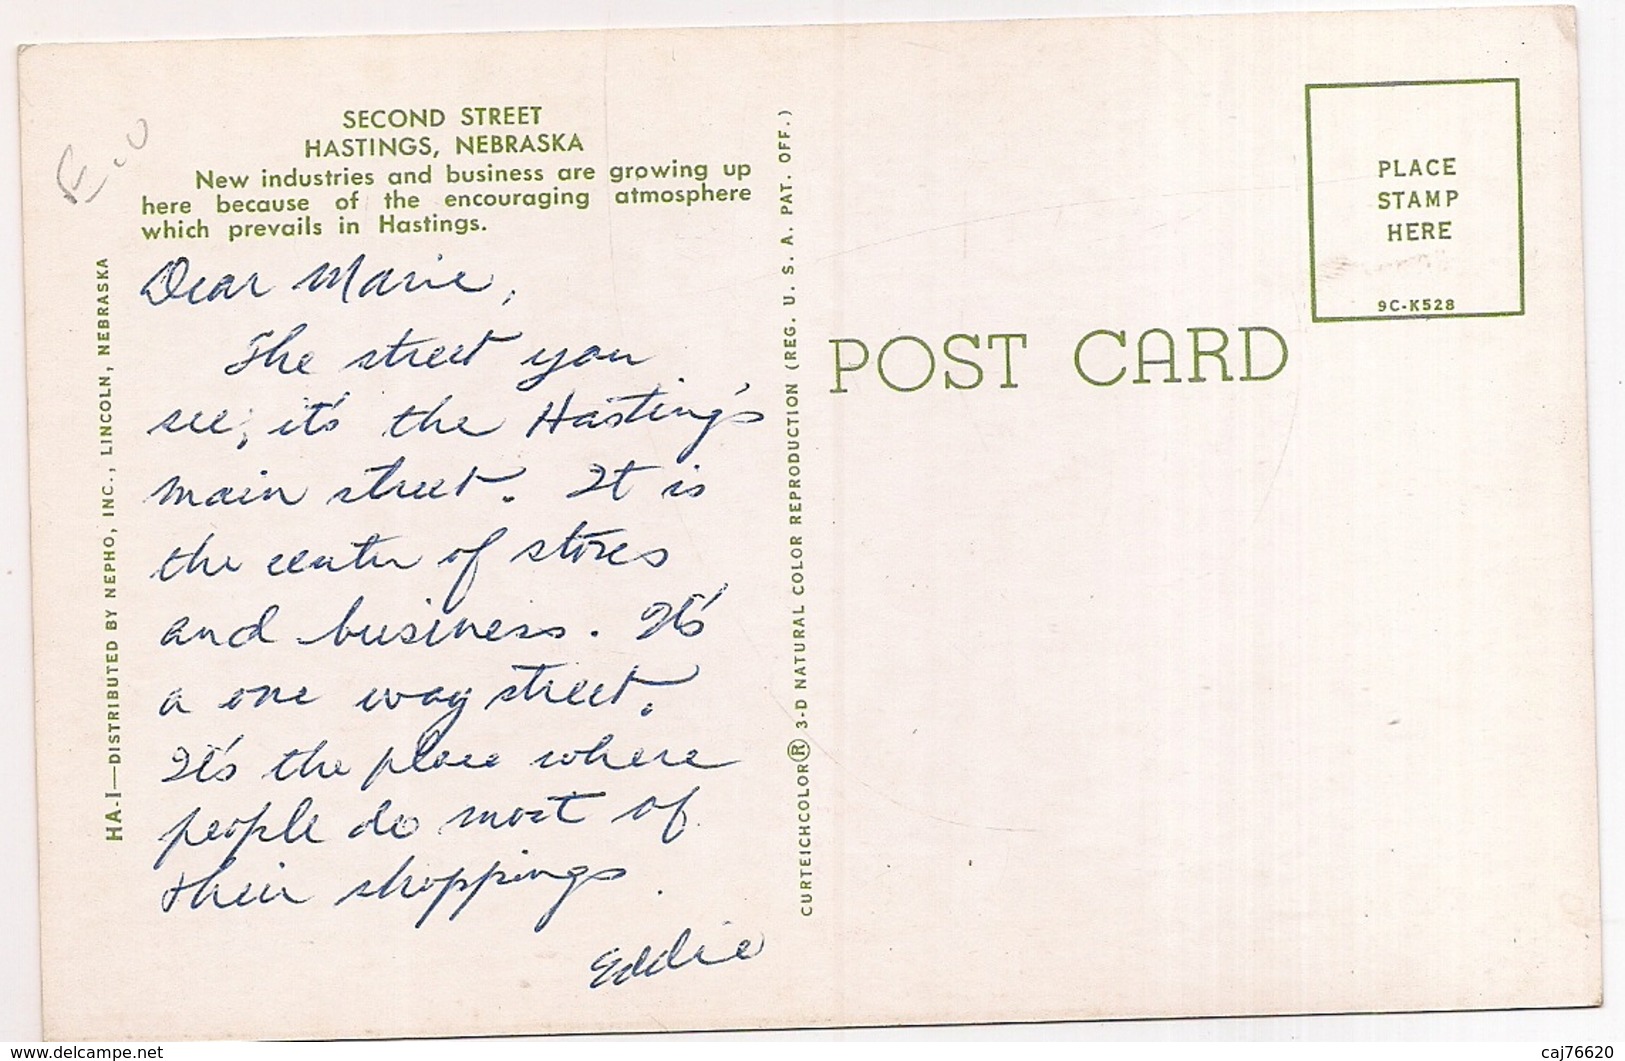 SECOND STREET
HASTINGS, NEBRASKA
New industries and business are growing up
here because of the encouraging atmosphere
which prevails in Hastings.
Dear Marie,
The street you
see, it's the Hasting's
main street. It is
the center of stores
and business. It's
a one way street.
It's the place where
people do most of
their shoppings.
Eddie
HA-I—DISTRIBUTED BY NEPHO, INC., LINCOLN, NEBRASKA
CURTEICHCOLOR® 3-D NATURAL COLOR REPRODUCTION (REG. U. S. A. PAT. OFF.)
POST CARD
PLACE
STAMP
HERE
9C-K528
www.delcampe.net
caj76620